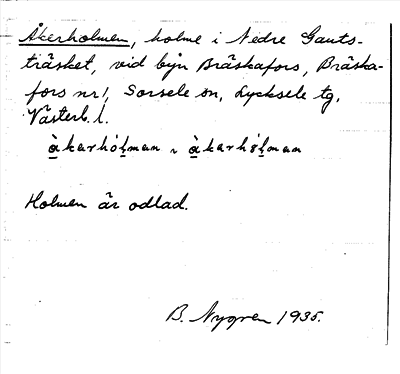 Åkerholmen, holme i Nedre Gauts-
träsket, vid byn Bräskafors, Bräska-
fors nr 1, Sorsele sn, Lycksele tg,
Västerb. l.
àkarhólman ~ àkarhólman
Holmen är odlad.
B. Nygren 1935.